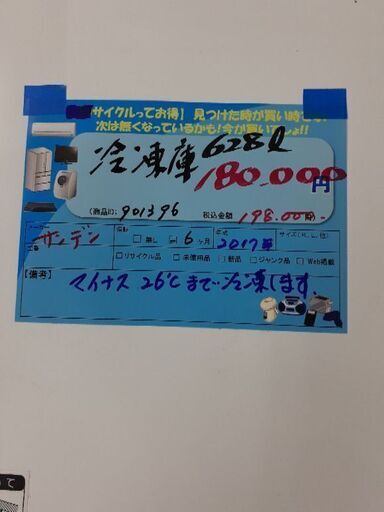 サイクルってお得】 見つけた時が買い時です!
次は無くなっているかも!今が買いでしょ!!
冷凍庫 628ℓ
180.000円
(商品ID: 901396 税込金額 198.000円)
メーカー サンデン 保証 □無し □6ヶ月 年式 2017年 サイズ(K、L、他)
□リサイクル品 □未使用品 □新品 □ジャンク品 □Web掲載
【備考】
マイナス26℃まで冷凍します。